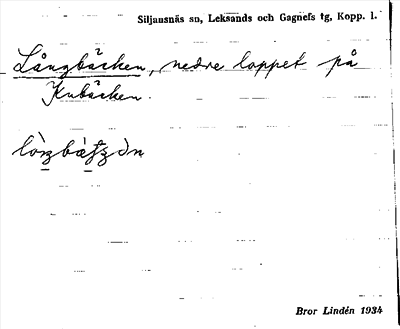 Siljansnäs sn, Leksands och Gagnefs tg, Kopp. l.
Långbäcken, nedre loppet på
Kubäcken.
Bror Lindén 1934